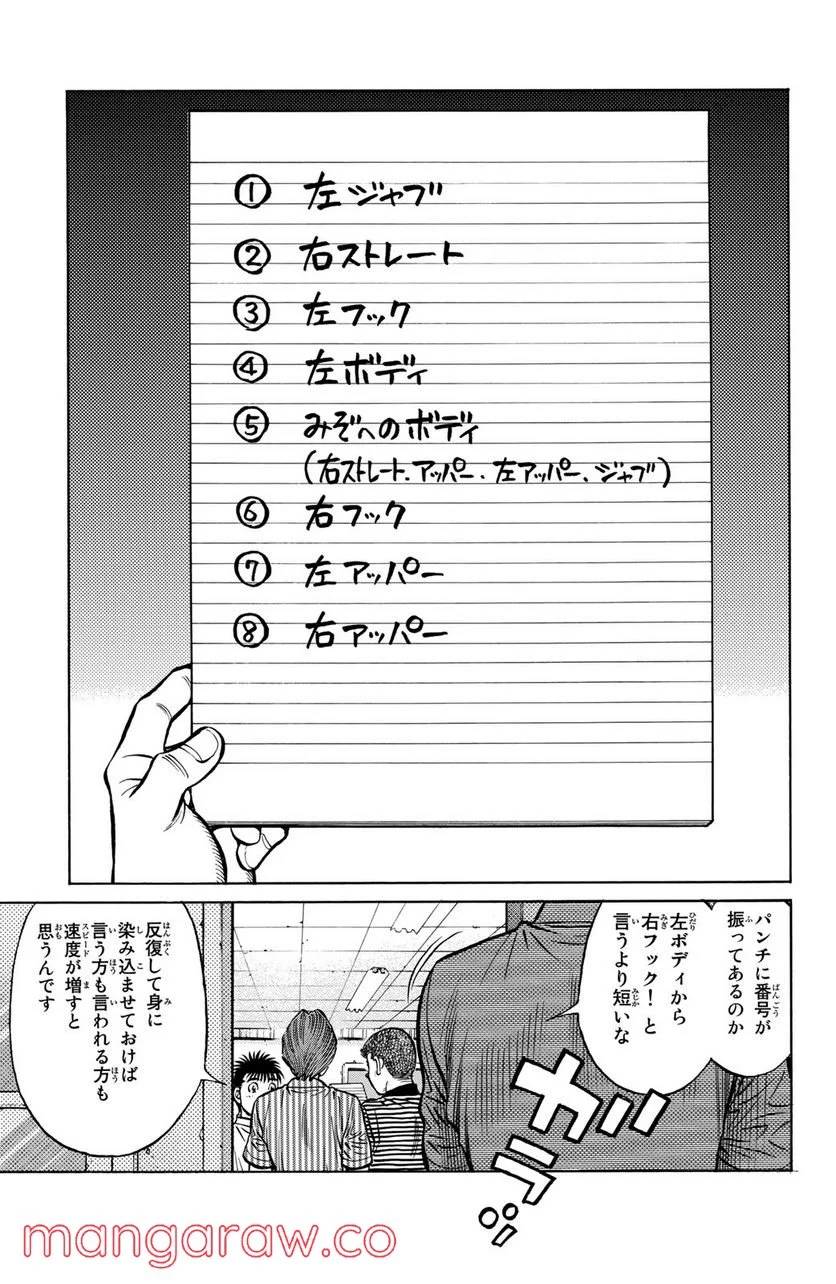 ① 左ジャブ
② 右ストレート
③ 左フック
④ 左ボディ
⑤ みぞへのボディ
(右ストレート、アッパー、左アッパー、ジャブ)
⑥ 右フック
⑦ 左アッパー
⑧ 右アッパー
パンチに番号が
振ってあるのか
左ボディから
右フック！と
言うより短いな
ガラ
反復して身に
染み込ませておけば
言う方も言われる方も
速度が増すと
思うんです
mangaraw.co